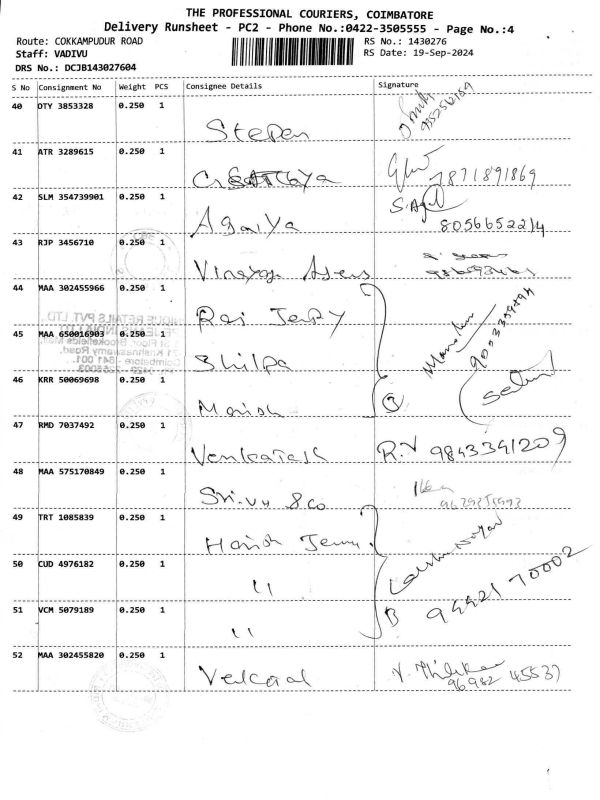 THE PROFESSIONAL COURIERS, COIMBATORE
Delivery Runsheet - PC2 - Phone No.:0422-3505555 - Page No.:4
Route: COKKAMPUDUR ROAD
RS No.: 1430276
Staff: VADIVU
RS Date: 19-Sep-2024
DRS No.: DCJB143027604
S No Consignment No Weight PCS Consignee Details Signature
40 OTY 3853328 0.250 1 Stepen
41 ATR 3289615 0.250 1 7871891869
42 SLM 354739901 0.250 1 Agaiya S.Agil
8056652214
43 RJP 3456710 0.250 1 Vinayaga
44 MAA 302455966 0.250 1 Raj Jerry
45 MAA 650016903 0.250 1 Shilpa
46 KRR 50069698 0.250 1 Manish 3
47 RMD 7037492 0.250 1 Venkatesh R.V 9843341209
48 MAA 575170849 0.250 1 Sri.vu & co
49 TRT 1085839 0.250 1 Harish
50 CUD 4976182 0.250 1 "
51 VCM 5079189 0.250 1 " 9442170002
52 MAA 302455820 0.250 1 V. Thilakar
96982 45537